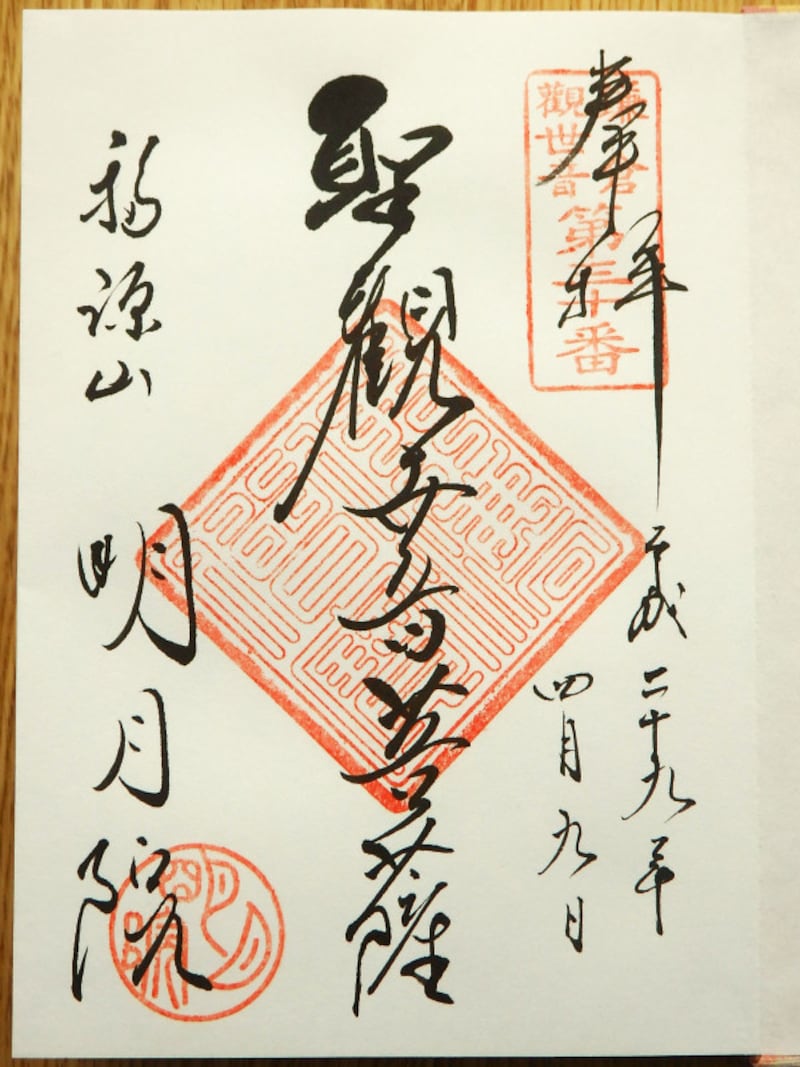 奉拝
平成二十九年
四月九日
鎌倉
觀世音
第三十番
聖觀世音菩薩
福源山
明月院